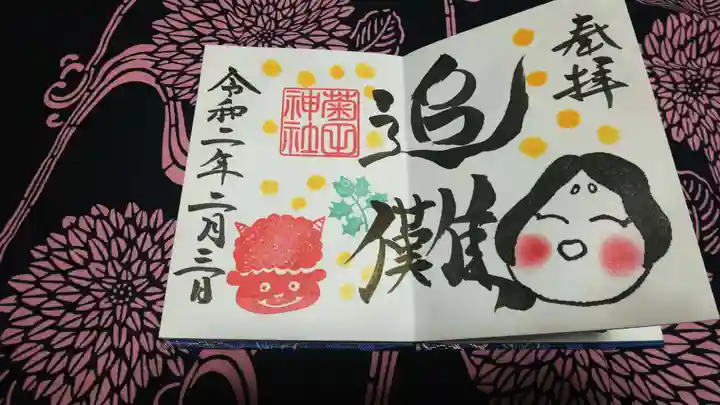 奉拝
追儺
菊田
神社
令和二年二月三日